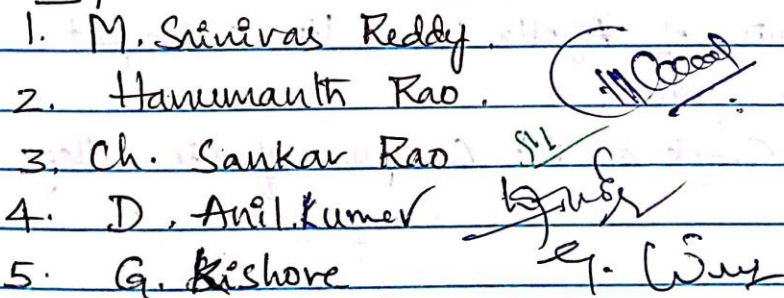 1. M. Srinivas Reddy.
2. Hanumanth Rao.
3, Ch. Sankar Rao
4. D. Anil.Kumer
5. G. Kishore G.